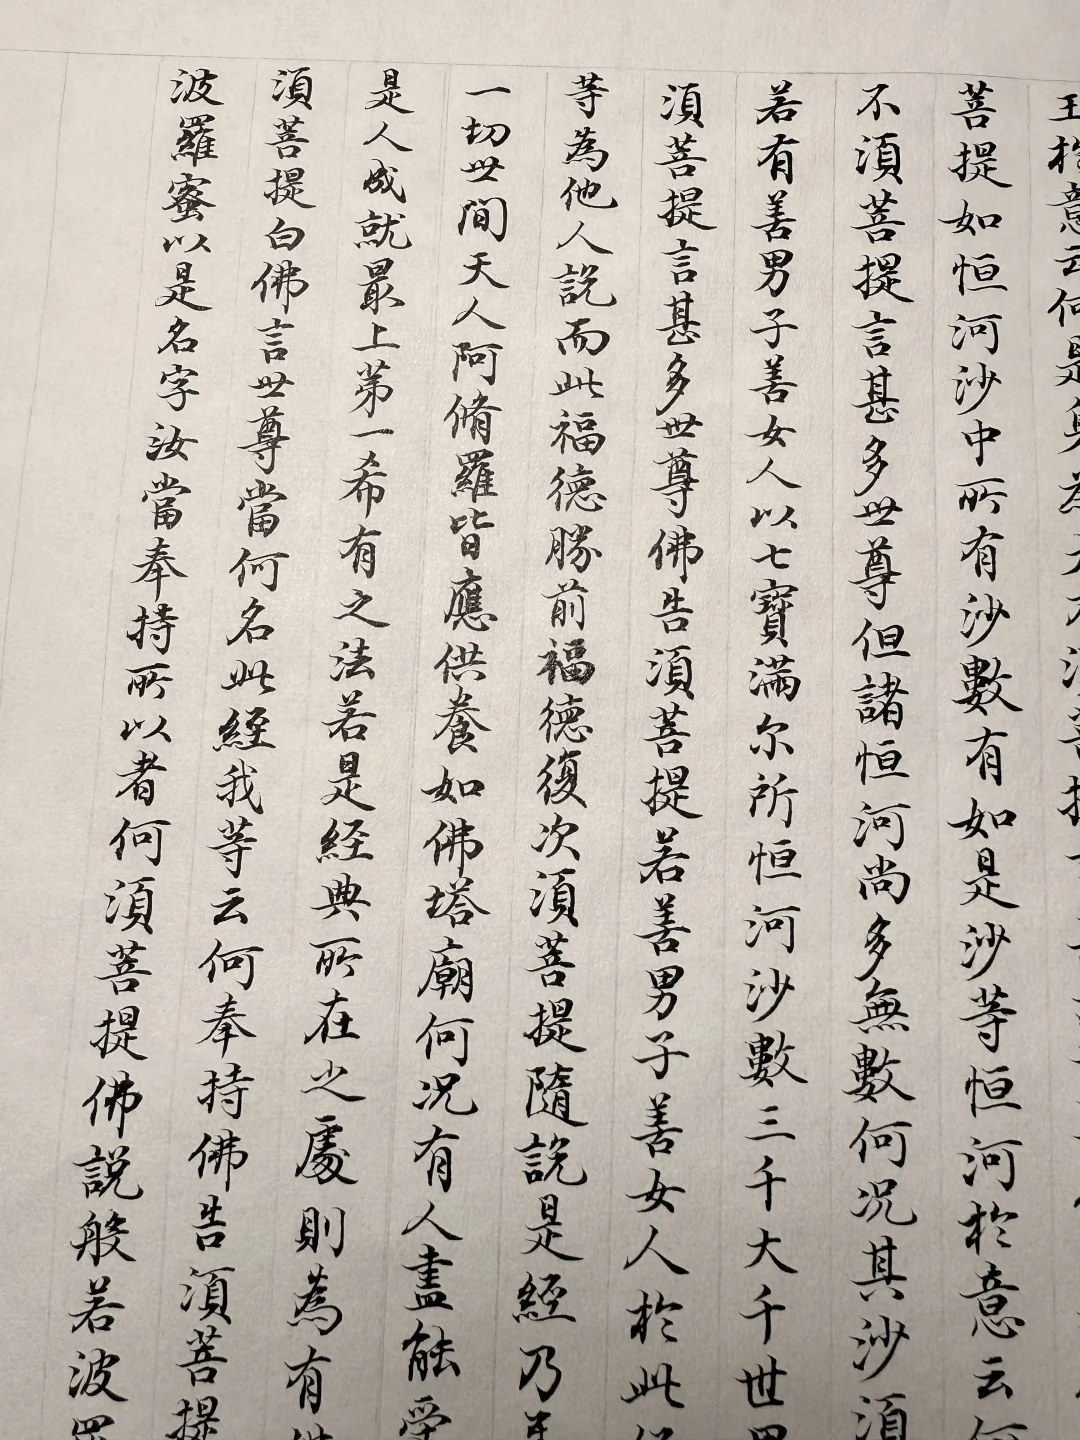 王於意云何是身為大不須菩提
菩提如恒河沙中所有沙數有如是沙等恒河於意云何
不須菩提言甚多世尊但諸恒河尚多無數何況其沙須
若有善男子善女人以七寶滿尔所恒河沙數三千大千世界
須菩提言甚多世尊佛告須菩提若善男子善女人於此經
等為他人說而此福德勝前福德復次須菩提隨說是經乃至
一切世間天人阿脩羅皆應供養如佛塔廟何況有人盡能受
是人成就最上第一希有之法若是經典所在之處則為有佛
須菩提白佛言世尊當何名此經我等云何奉持佛告須菩提
波羅蜜以是名字汝當奉持所以者何須菩提佛說般若波羅